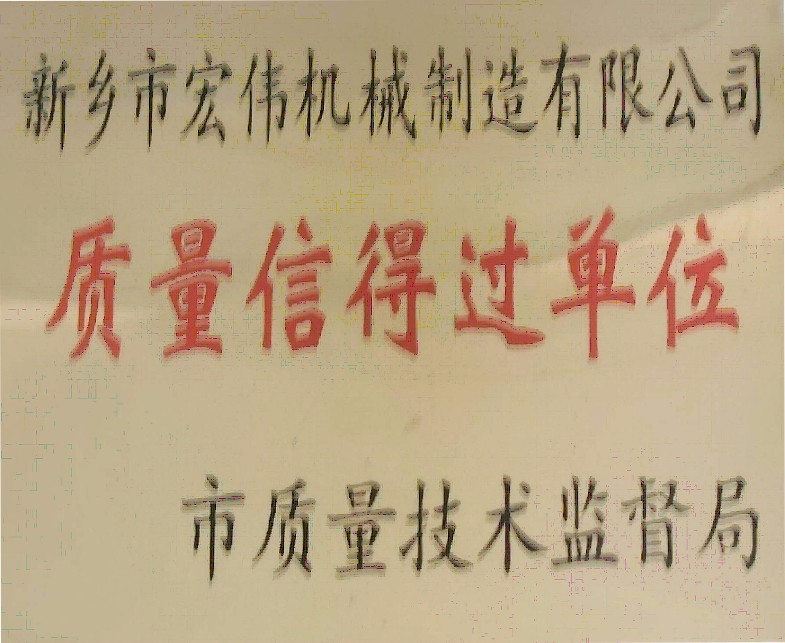 新乡市宏伟机械制造有限公司
质量信得过单位
市质量技术监督局